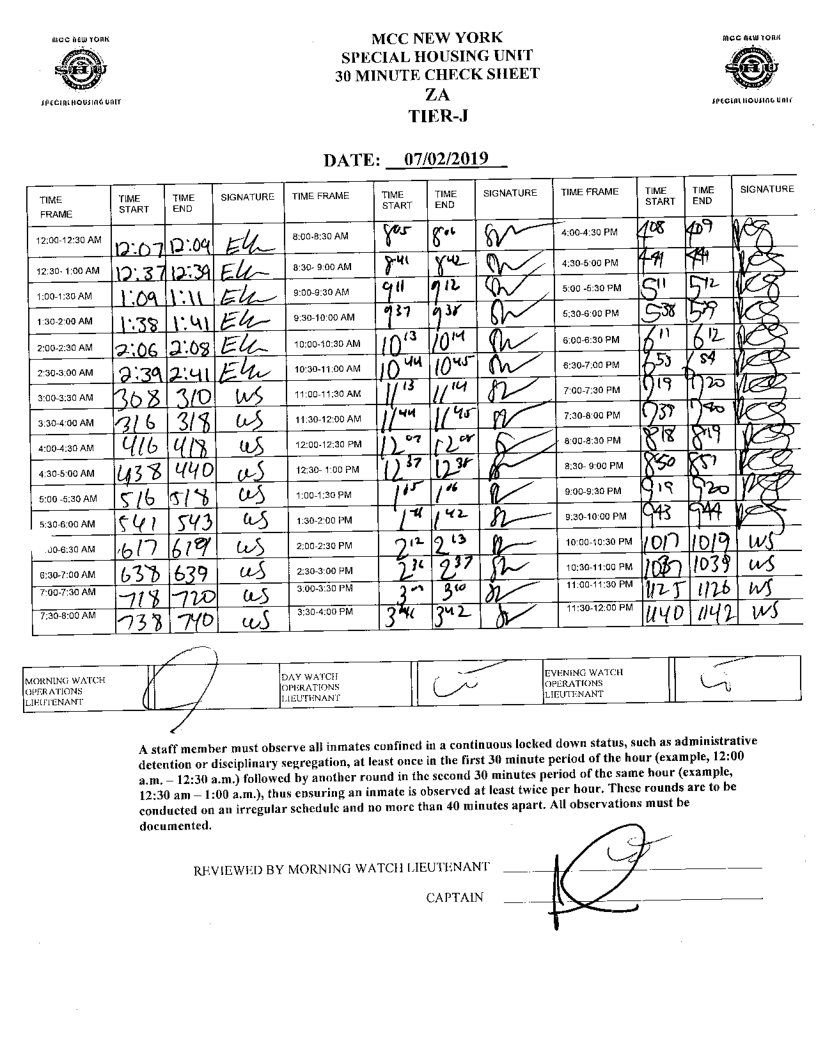 MCC NEW YORK
SHU
SPECIAL HOUSING UNIT
MCC NEW YORK
SPECIAL HOUSING UNIT
30 MINUTE CHECK SHEET
ZA
TIER-J
MCC NEW YORK
SHU
SPECIAL HOUSING UNIT
DATE: 07/02/2019
TIME FRAME TIME START TIME END SIGNATURE TIME FRAME TIME START TIME END SIGNATURE TIME FRAME TIME START TIME END SIGNATURE
12:00-12:30 AM 12:07 12:09 8:00-8:30 AM 805 806 4:00-4:30 PM 408 409
12:30- 1:00 AM 12:37 12:39 8:30- 9:00 AM 841 842 4:30-5:00 PM 441
1:00-1:30 AM 1:09 1:11 9:00-9:30 AM 911 912 5:00 -5:30 PM 511 512
1:30-2:00 AM 1:38 1:41 9:30-10:00 AM 937 938 5:30-6:00 PM 538 539
2:00-2:30 AM 2:06 2:08 10:00-10:30 AM 1013 1014 6:00-6:30 PM 611 612
2:30-3:00 AM 2:39 2:41 10:30-11:00 AM 1044 1045 6:30-7:00 PM 653 54
3:00-3:30 AM 308 310 WS 11:00-11:30 AM 1113 1114 7:00-7:30 PM 719 720
3:30-4:00 AM 316 318 WS 11:30-12:00 AM 1144 1145 7:30-8:00 PM 739 740
4:00-4:30 AM 416 418 WS 12:00-12:30 PM 1207 1208 8:00-8:30 PM 818 819
4:30-5:00 AM 438 440 WS 12:30- 1:00 PM 1237 1238 8:30- 9:00 PM 850 851
5:00 -5:30 AM 516 518 WS 1:00-1:30 PM 105 106 9:00-9:30 PM 919 920
5:30-6:00 AM 541 543 WS 1:30-2:00 PM 141 142 9:30-10:00 PM 943 944
:00-6:30 AM 617 619 WS 2:00-2:30 PM 212 213 10:00-10:30 PM 1017 1019 WS
6:30-7:00 AM 638 639 WS 2:30-3:00 PM 236 237 10:30-11:00 PM 1037 1039 WS
7:00-7:30 AM 718 720 WS 3:00-3:30 PM 310 11:00-11:30 PM 1125 1126 WS
7:30-8:00 AM 738 740 WS 3:30-4:00 PM 341 342 11:30-12:00 PM 1140 1142 WS
MORNING WATCH OPERATIONS LIEUTENANT DAY WATCH OPERATIONS LIEUTENANT EVENING WATCH OPERATIONS LIEUTENANT
A staff member must observe all inmates confined in a continuous locked down status, such as administrative
detention or disciplinary segregation, at least once in the first 30 minute period of the hour (example, 12:00
a.m. – 12:30 a.m.) followed by another round in the second 30 minutes period of the same hour (example,
12:30 am – 1:00 a.m.), thus ensuring an inmate is observed at least twice per hour. These rounds are to be
conducted on an irregular schedule and no more than 40 minutes apart. All observations must be
documented.
REVIEWED BY MORNING WATCH LIEUTENANT
CAPTAIN